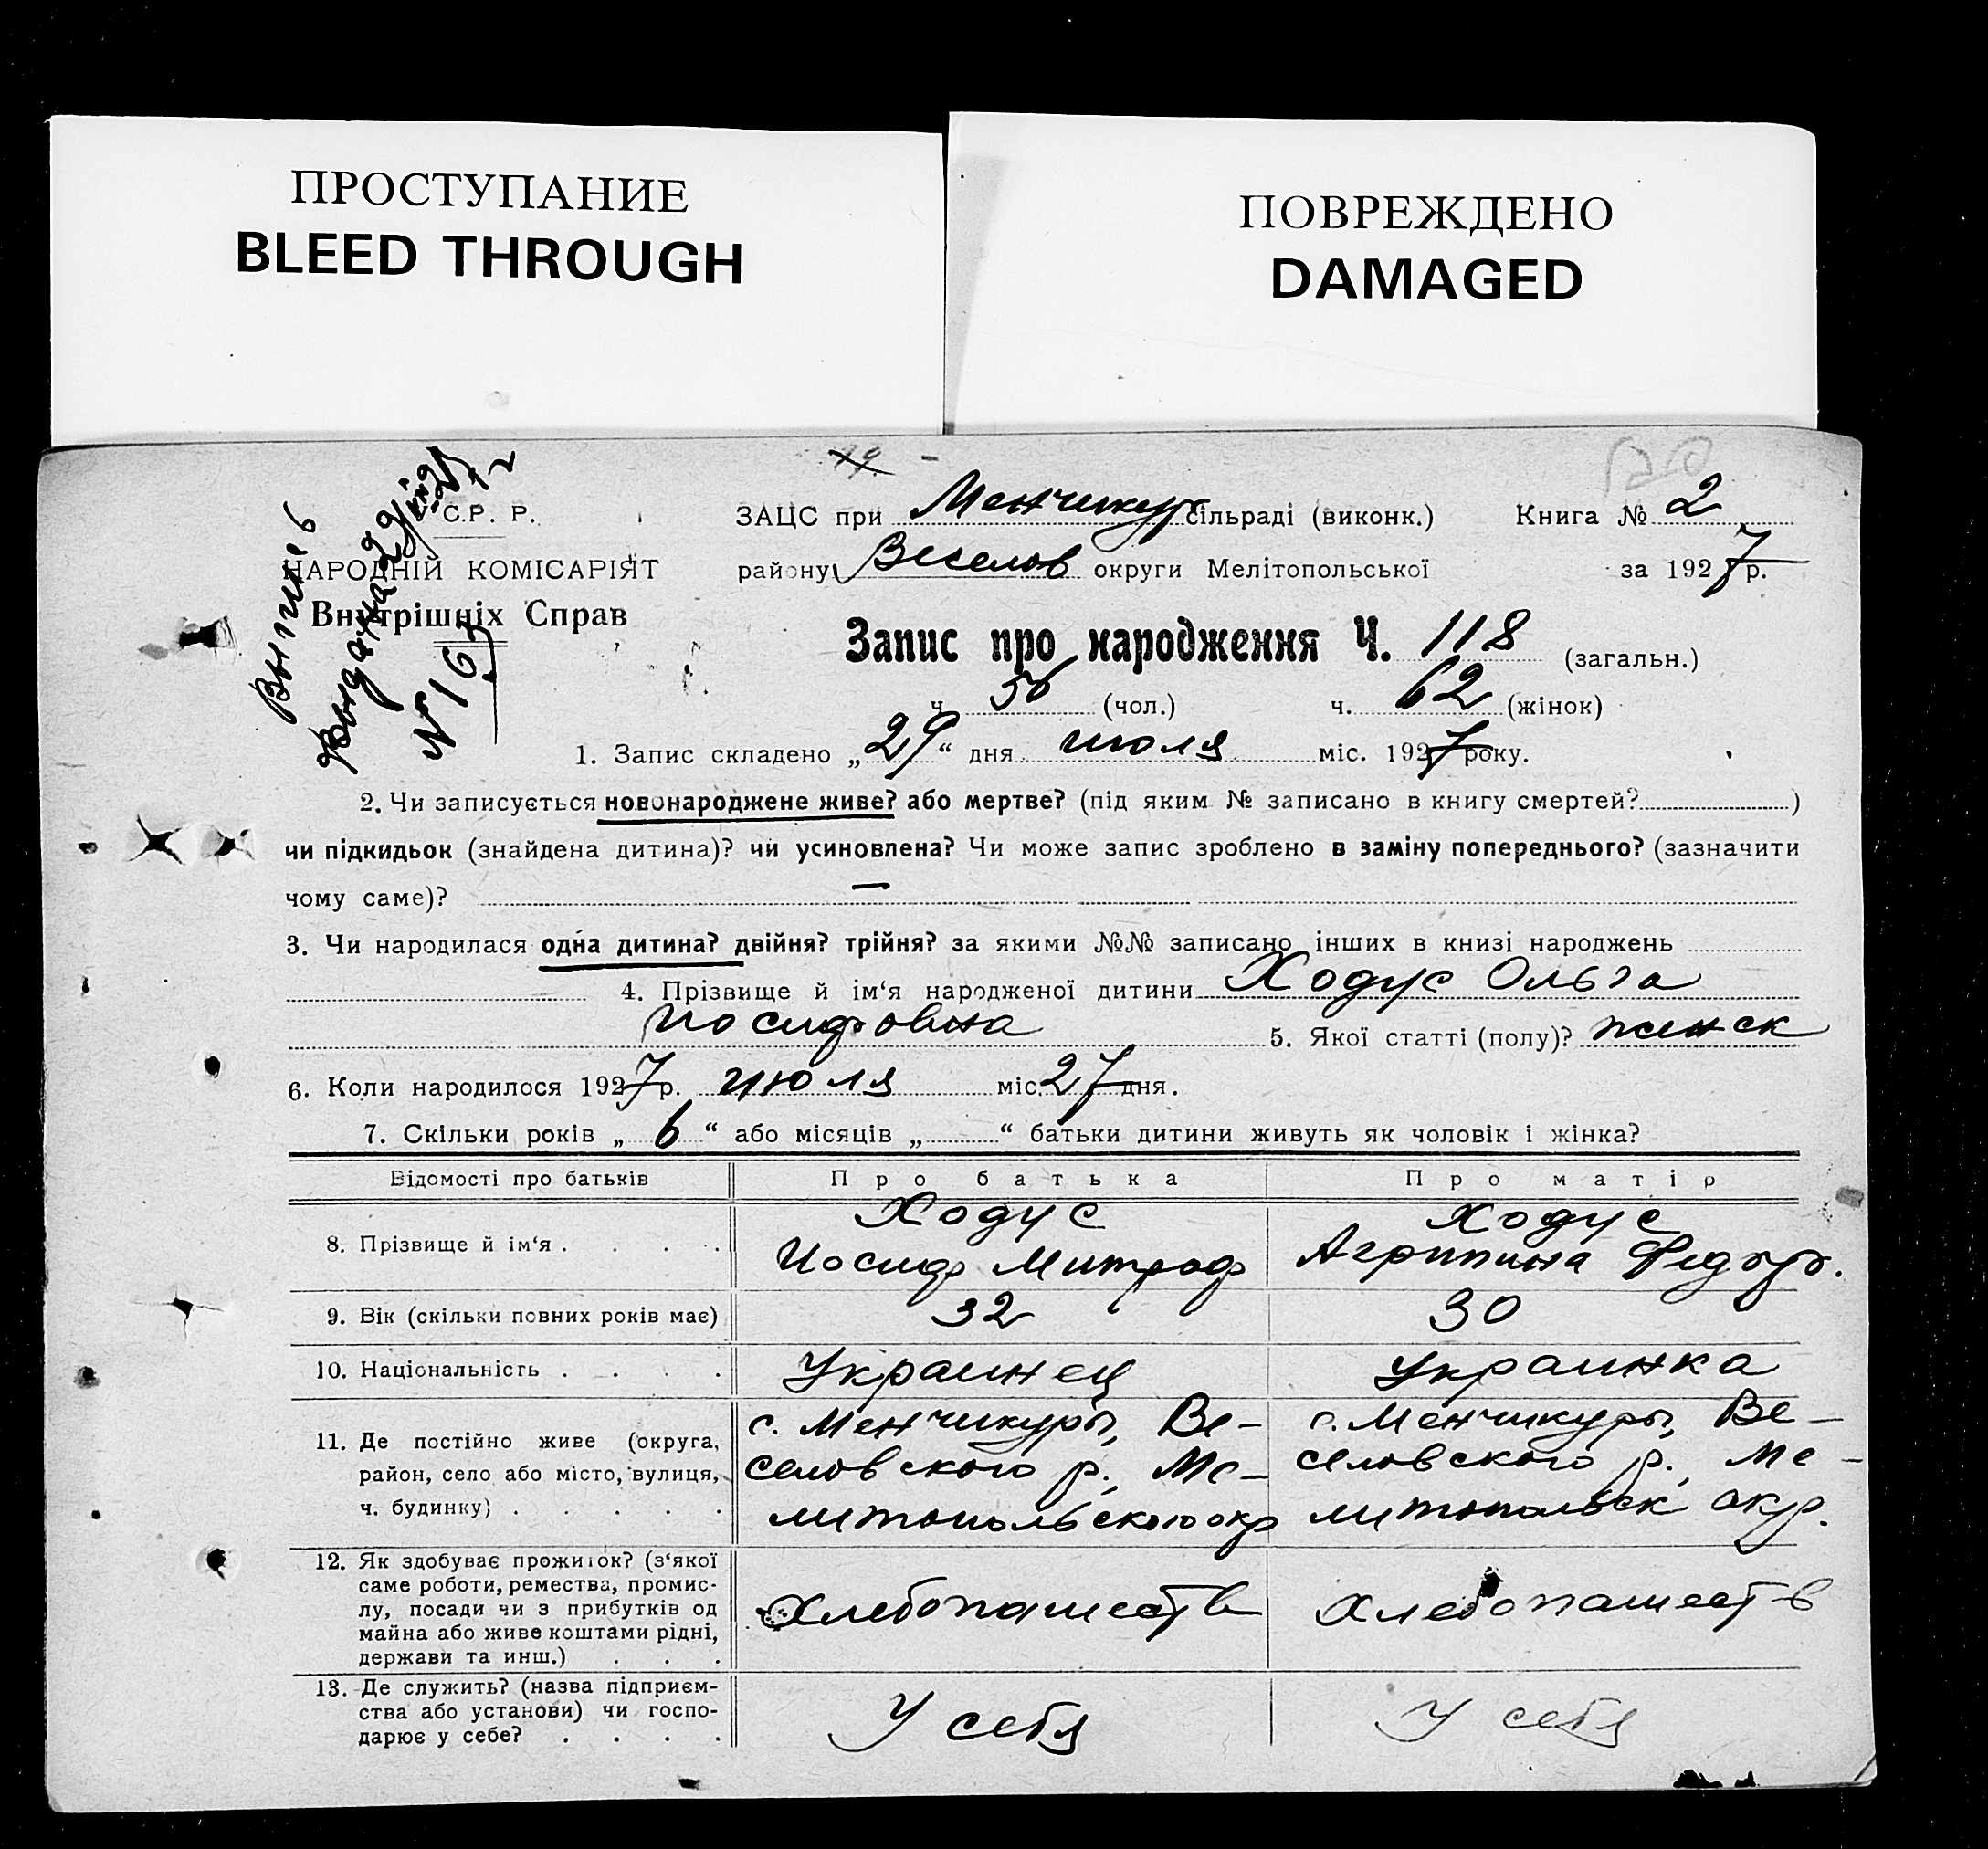 ПРОСТУПАНИЕ
BLEED THROUGH
ПОВРЕЖДЕНО
DAMAGED
С.Р. Р.
НАРОДНІЙ КОМІСАРІЯТ
Внутрішніх Справ
Выпись
выдана
№ 167
ЗАЦС при Менчикур сільраді (виконк.) Книга № 2
району Веселов округи Мелітопольської за 1927 р.
Запис про народження Ч. 118 (загальн.)
ч. 56 (чол.) ч. 62 (жінок)
1. Запис складено „29“ дня июля міс. 1927 року.
2. Чи записується новонароджене живе? або мертве? (під яким № записано в книгу смертей? )
чи підкидьок (знайдена дитина)? чи усиновлена? Чи може запис зроблено в заміну попереднього? (зазначити
чому саме)? —
3. Чи народилася одна дитина? двійня? трійня? за якими №№ записано інших в книзі народжень
4. Прізвище й ім‘я народженої дитини Ходус Ольга
Иосифовна 5. Якої статті (полу)? женск
6. Коли народилося 1927 р. июля міс. 27 дня.
7. Скільки років „6“ або місяців „ “ батьки дитини живуть як чоловік і жінка?
Відомості про батьків Про батька Про матір
8. Прізвище й ім‘я . . . . Ходус Иосиф Митроф Ходус Агрипина Федор.
9. Вік (скільки повних років має) 32 30
10. Національність . . . . Украинец Украинка
11. Де постійно живе (округа, с. Менчикуры, Ве- с. Менчикуры, Ве-
район, село або місто, вулиця, селовского р., Ме- селовского р., Ме-
ч. будинку) . . . . . литопольского окр литопольск окр.
12. Як здобуває прожиток? (з‘якої
саме роботи, ремества, промис-
лу, посади чи з прибутків од Хлебопашеств Хлебопашеств
майна або живе коштами рідні,
держави та инш.) . . .
13. Де служить? (назва підприєм-
ства або установи) чи госпо- У себя У себя
дарює у себе? . . . .